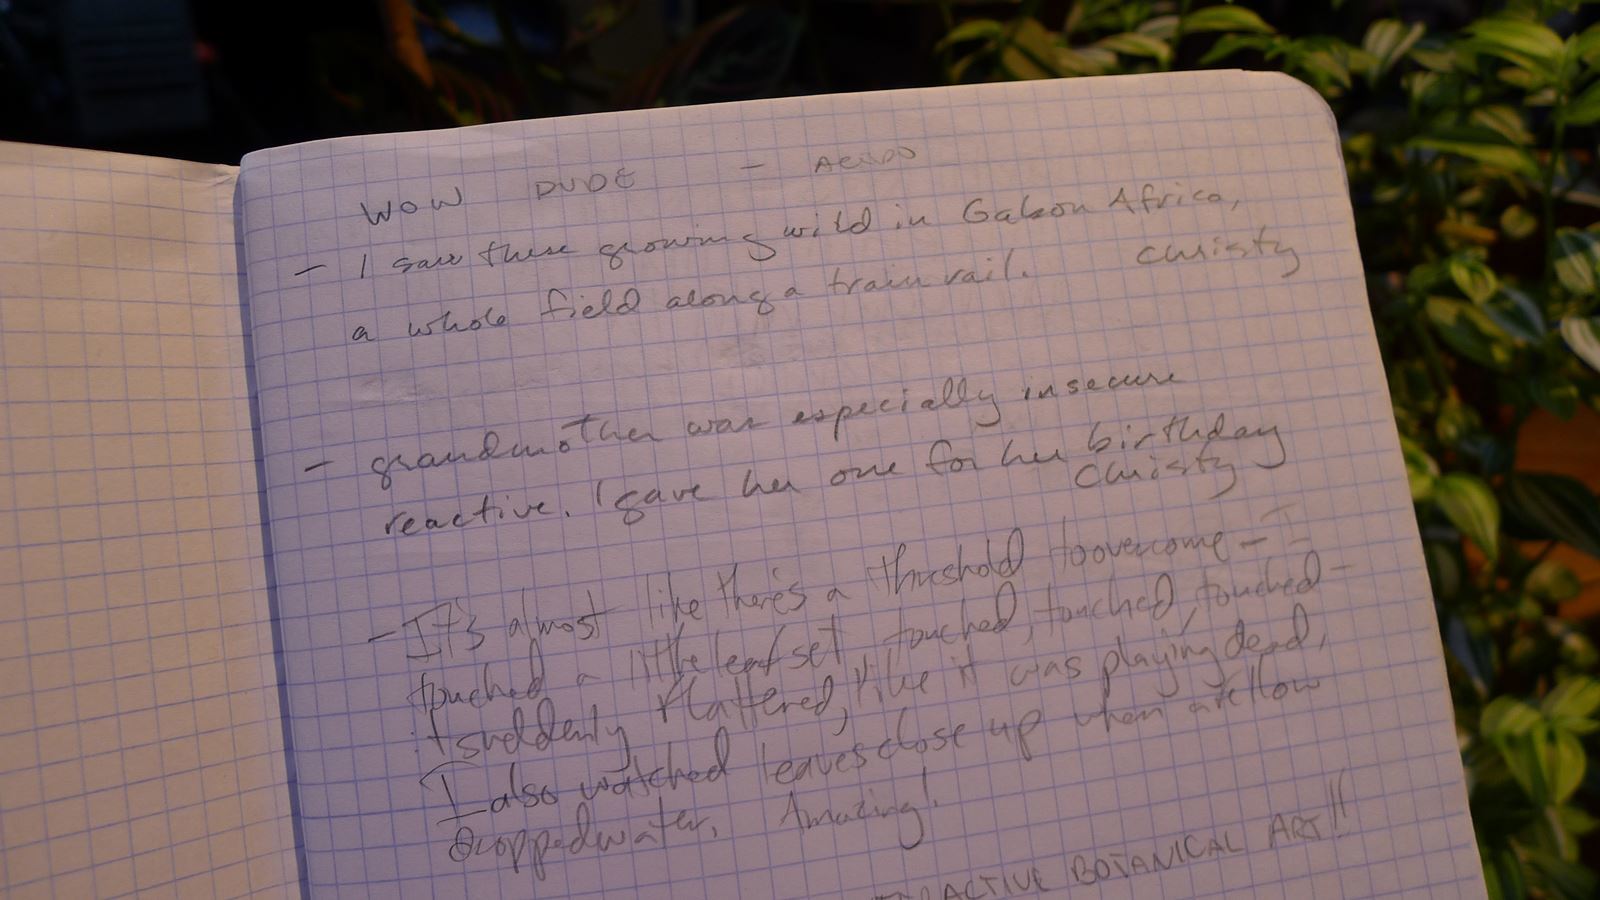 WOW DUDE -
- I saw these growing wild in Gabon Africa,
a whole field along a train rail. Christy
- grandmother was especially insecure
reactive. I gave her one for her birthday
Christy
- It's almost like there's a threshold to overcome - I
touched a little leaf set touched, touched, touched -
it suddenly flattered, like it was playing dead,
I also watched leaves close up when a fellow
dropped water. Amazing!
ACTIVE BOTANICAL ART!!